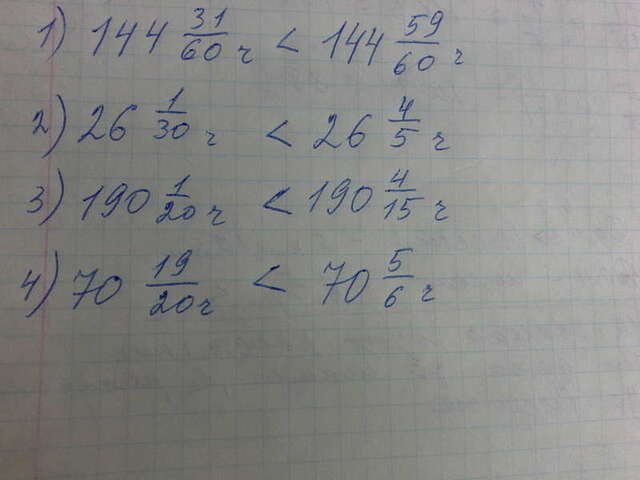 1) 144 31/60 ч < 144 59/60 ч
2) 26 1/30 ч < 26 4/5 ч
3) 190 1/20 ч < 190 4/15 ч
4) 70 19/20 ч < 70 5/6 ч